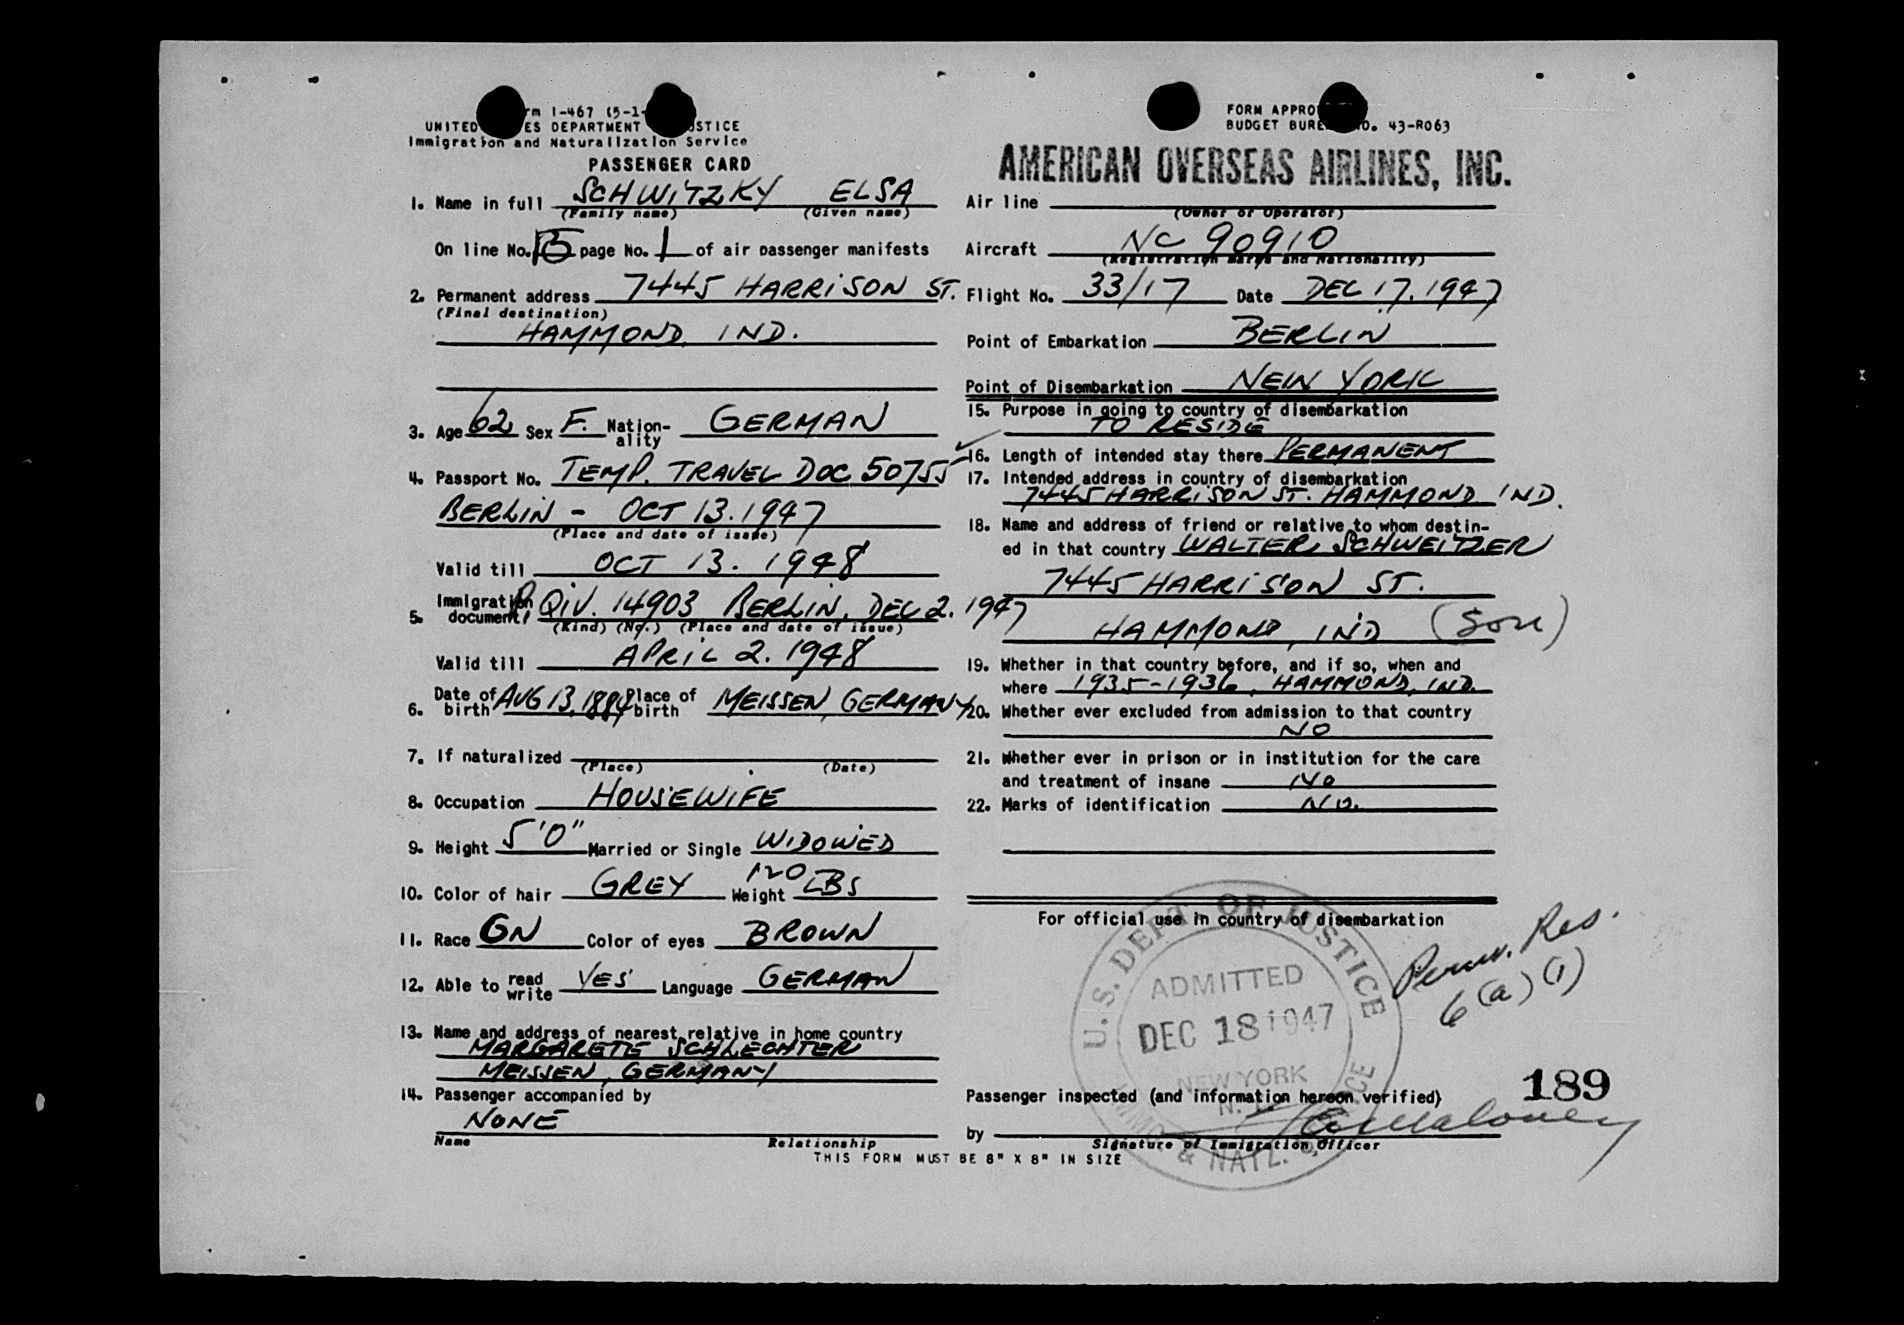 rm I-467 (5-1-
UNITED ES DEPARTMENT STICE
Immigration and Naturalization Service
PASSENGER CARD
1. Name in full SCHWITZKY ELSA
(Family name) (Given name)
On line No. 15 page No. 1 of air passenger manifests
2. Permanent address 7445 HARRISON ST.
(Final destination)
HAMMOND, IND.
3. Age 62 Sex F. Nation-ality GERMAN
4. Passport No. TEMP. TRAVEL DOC 50755
BERLIN - OCT 13. 1947
(Place and date of issue)
Valid till OCT 13. 1948
5. Immigration document QIV. 14903 BERLIN, DEC 2. 1947
(Kind) (No.) (Place and date of issue)
Valid till APRIL 2. 1948
6. Date of birth AUG 13, 1884 Place of birth MEISSEN, GERMANY
7. If naturalized
(Place) (Date)
8. Occupation HOUSEWIFE
9. Height 5'0" Married or Single WIDOWED
10. Color of hair GREY Weight 120 LBS
11. Race GN Color of eyes BROWN
12. Able to read write YES Language GERMAN
13. Name and address of nearest relative in home country
MARGARETE SCHLECHTER
MEISSEN, GERMANY
14. Passenger accompanied by
NONE
Name Relationship
THIS FORM MUST BE 8" X 8" IN SIZE
FORM APPRO
BUDGET BURE O. 43-R063
AMERICAN OVERSEAS AIRLINES, INC.
Air line
(Owner or Operator)
Aircraft NC 90910
(Registration marks and Nationality)
Flight No. 33/17 Date DEC 17. 1947
Point of Embarkation BERLIN
Point of Disembarkation NEW YORK
15. Purpose in going to country of disembarkation
TO RESIDE
16. Length of intended stay there PERMANENT
17. Intended address in country of disembarkation
7445 HARRISON ST. HAMMOND IND.
18. Name and address of friend or relative to whom destin-
ed in that country WALTER SCHWEITZER
7445 HARRISON ST.
HAMMOND, IND (Son)
19. Whether in that country before, and if so, when and
where 1935-1936, HAMMOND, IND.
20. Whether ever excluded from admission to that country
NO
21. Whether ever in prison or in institution for the care
and treatment of insane NO
22. Marks of identification NO.
For official use in country of disembarkation
U.S. DEPT. OF JUSTICE
ADMITTED
DEC 18 1947
NEW YORK
N.Y.
IMMIG. & NATZ. SERVICE
Perm. Res.
6(a)(1)
189
Passenger inspected (and information hereon verified)
by
Signature of Immigration Officer